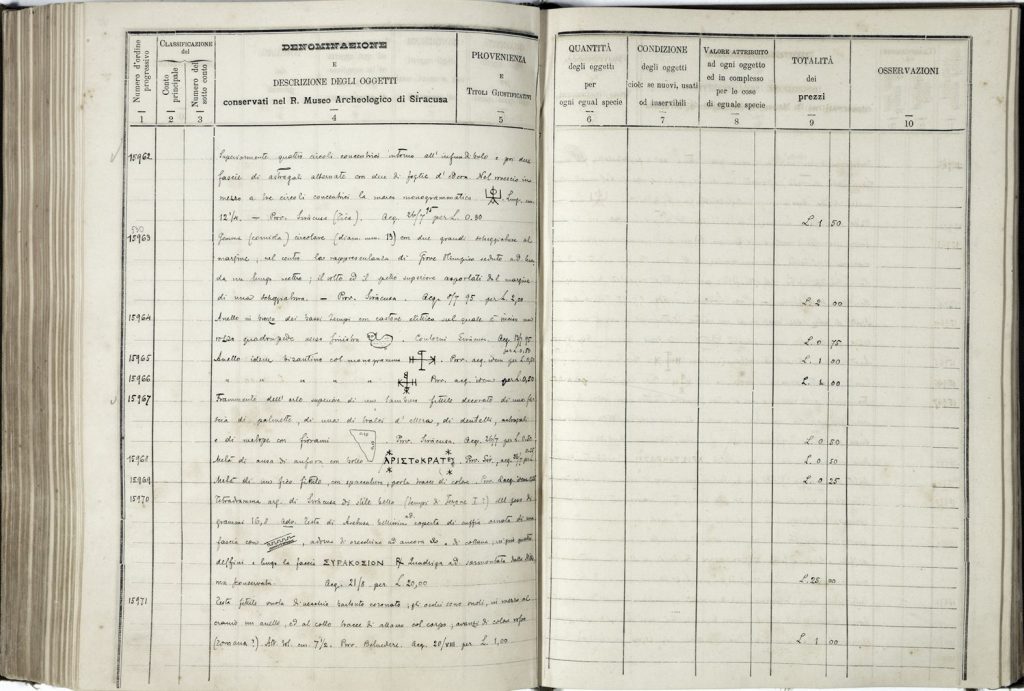 Numero d'ordine progressivo
Classificazione del
Conto principale
Numero del sotto conto
DENOMINAZIONE
E
DESCRIZIONE DEGLI OGGETTI
conservati nel R. Museo Archeologico di Siracusa
PROVENIENZA
E
Titoli Giustificativi
QUANTITÀ
degli oggetti
per
ogni egual specie
CONDIZIONE
degli oggetti
cioè: se nuovi, usati
od inservibili
VALORE ATTRIBUITO
ad ogni oggetto
ed in complesso
per le cose
di eguale specie
TOTALITÀ
dei
prezzi
OSSERVAZIONI
1 2 3 4 5 6 7 8 9 10
15962 Superiormente quattro circoli concentrici intorno all' e poi due
fascie di astragali alternate con due di foglie d'edera. Nel rovescio in
mezzo a tre circoli concentrici la marca monogrammatica Lung. cm.
12½. – Prov. Siracusa. Acq. 26/7 95 per L. 0.80 L. 1 50
15963 Gemma (corniola) circolare (diam. mm. 13) con due grandi scheggiature al
margine; nel centro la rappresentanza di Giove Olimpico seduto
da un lungo scettro; il sotto ed il superiore asportati dal margine
di una scheggiatura. – Prov. Siracusa. Acq. 8/7 95 per L. 2,00 L. 2 00
15964 Anello in bronzo dei bassi tempi con castone elittico sul quale è inciso un
rozzo quadrupede verso sinistra. Contorni Siracusa. Acq. 95
L. 0 75
15965 Anello idem bizantino col monogramma Prov. acq. idem per L. 0,50 L. 1 00
15966 " " " " " Prov. acq. idem per L. 0,50 L. 1 00
15967 Frammento dell'orlo superiore di un fittile decorato di una fa
scia di palmette, di una di tralci d'edera, di dentelli, astragali
e di metope con fiorami Prov. Siracusa. Acq. 26/7 per L. 0.50 L. 0 50
15968 Metà di ansa di anfora con bollo ΑΡΙΣΤΟΚΡΑΤΕΥΣ. Prov. Sir., acq. L. 0 50
15969 Metà di un fittile, con spaccatura, porta tracce di colore. Prov. acq. idem L. 0 25
15970 Tetradramma arg. di Siracusa di stile bello (tempi di Ierone I?) del peso di
grammi Testa di Aretusa bellissima coperta di cuffia ornata di una
fascia con, adorna di orecchino ad ancora e di collana; ivi quattro
delfini e lungo la fascia ΣΥΡΑΚΟΣΙΟΝ Quadriga ad sormontata dalla
ma conservata. Acq. 21/8 per L. 20,00 L. 25 00
15971 Testa fittile vuota di vecchio barbato coronato; gli occhi sono vuoti, in mezzo al
cranio un anello, ed al collo tracce di attacco col corpo; avanzi di colore
(romana?) Alt. tot. cm. 7½. Prov. Belvedere. Acq. 20/VIII per L. 1,00 L. 1 00